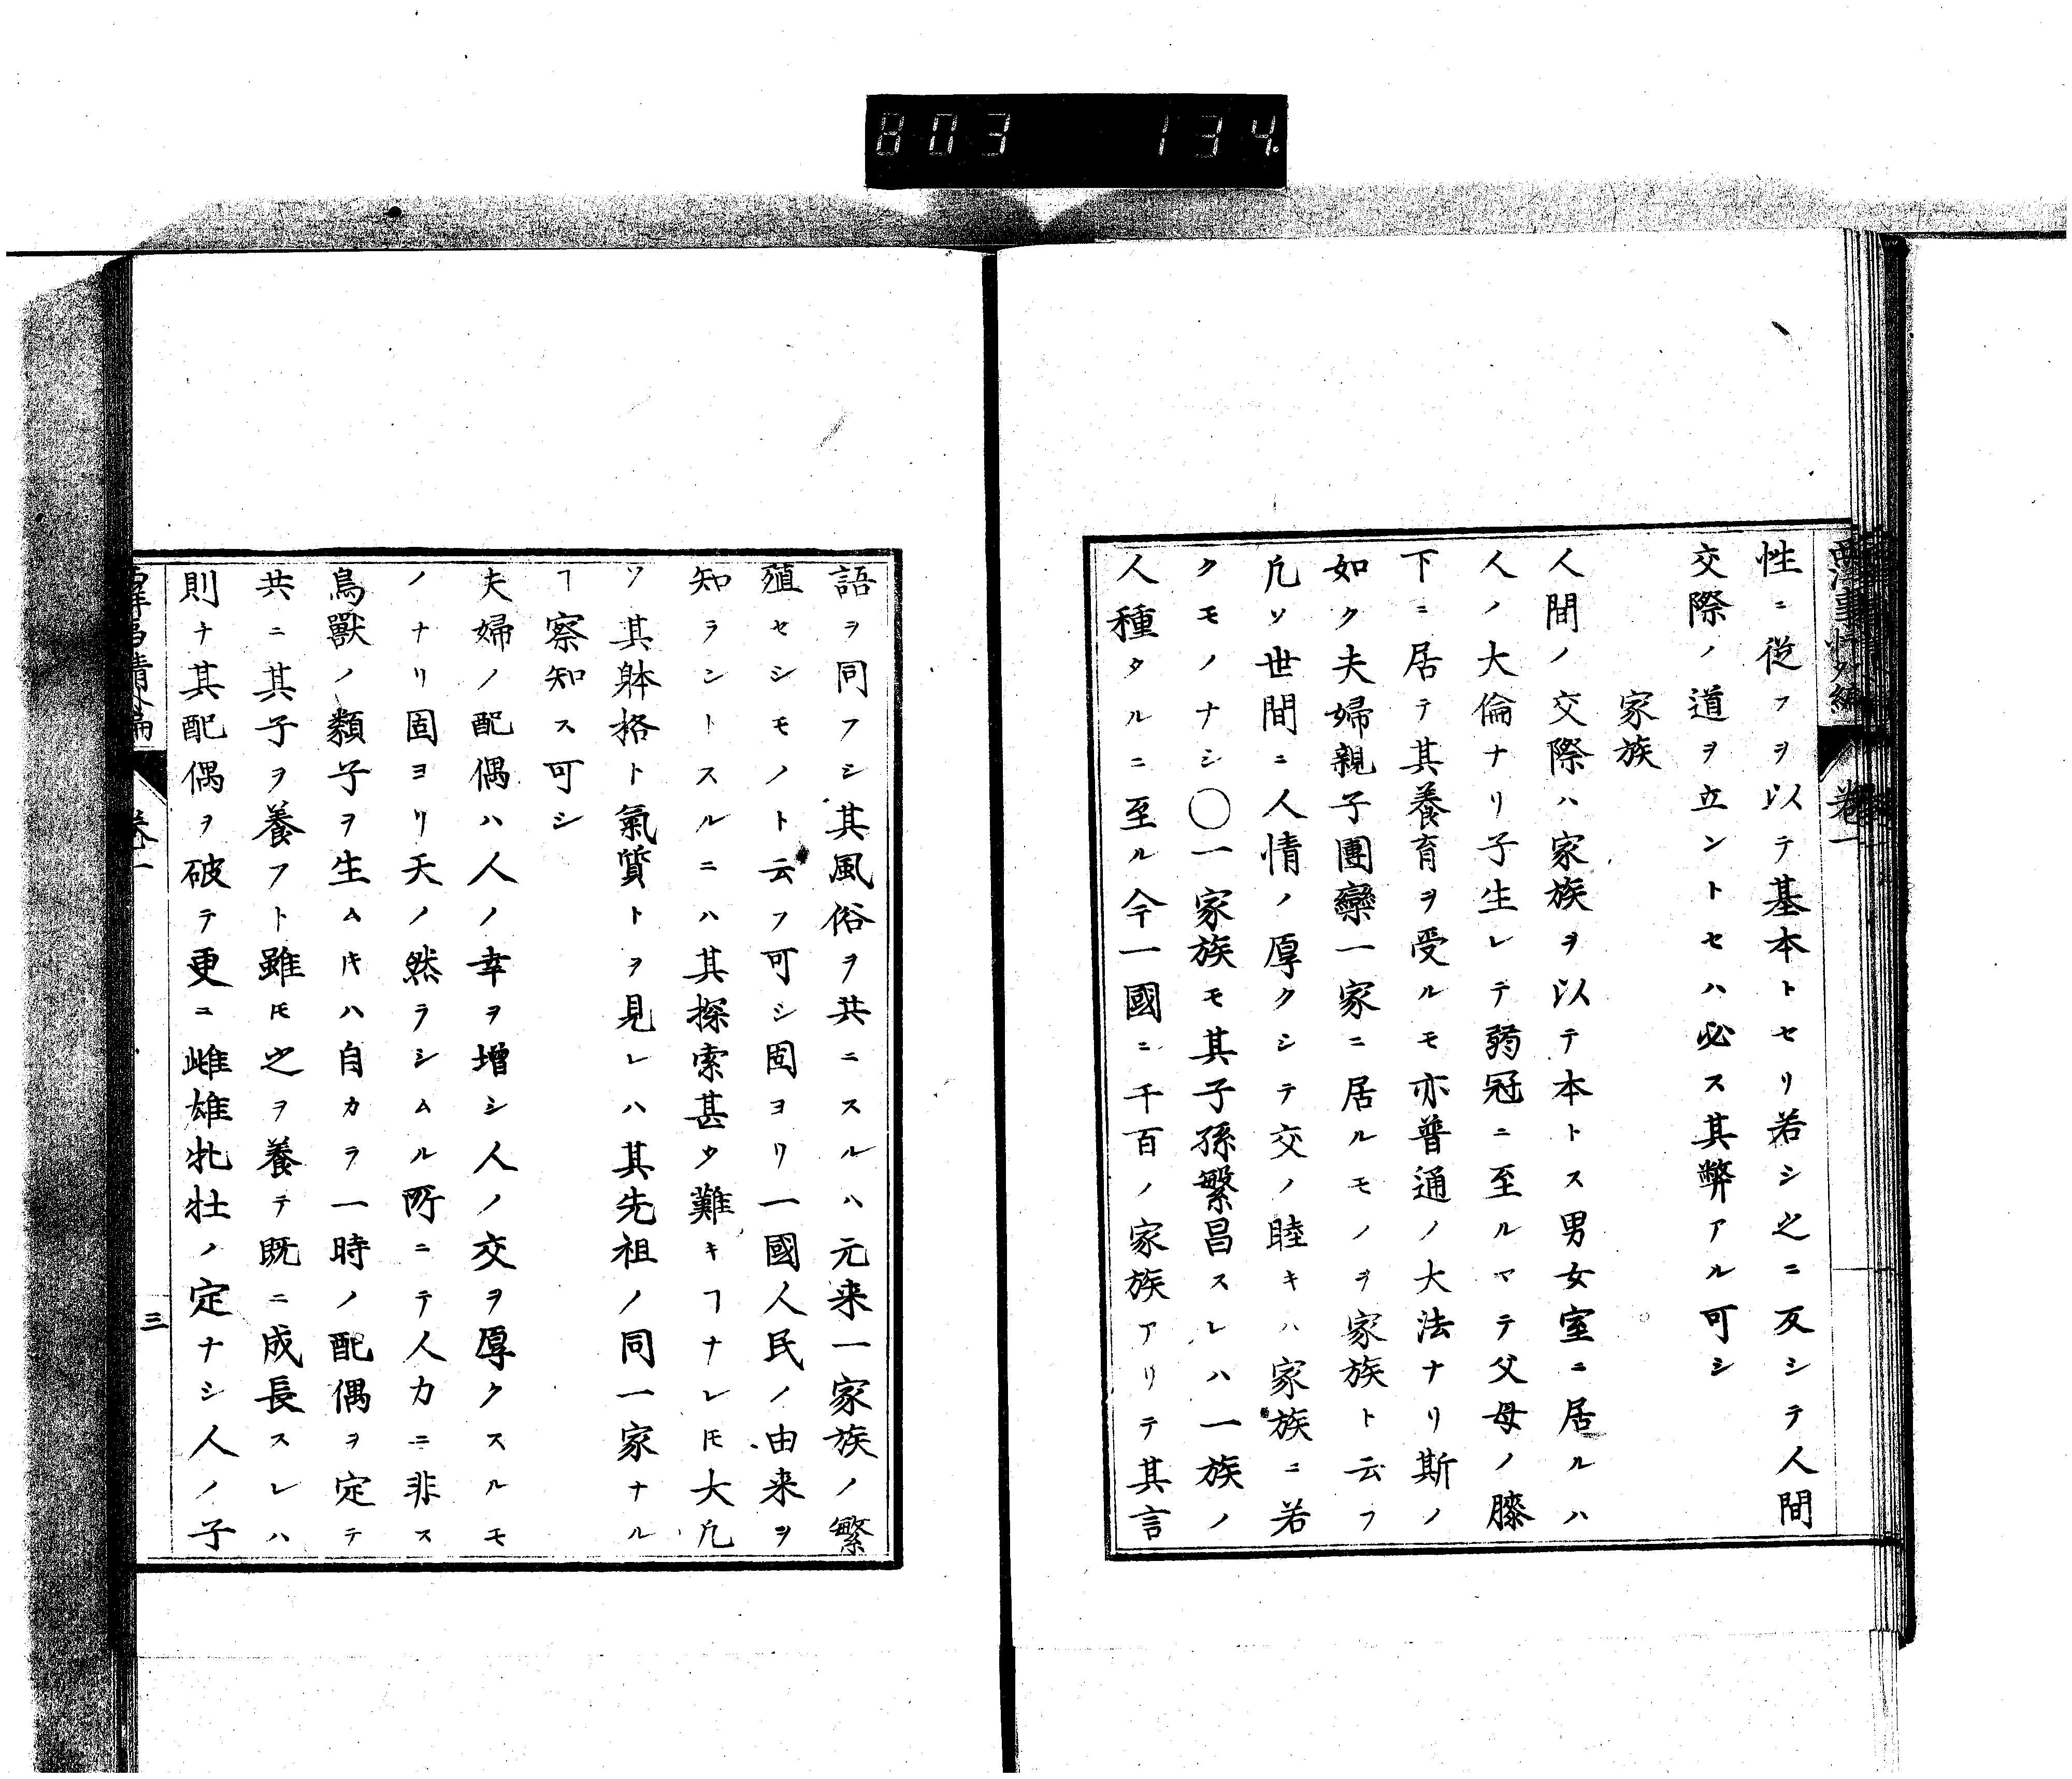 803 134.
西洋事情外編 卷一
性ニ従フヲ以テ基本トセリ若シ之ニ反シテ人間
交際ノ道ヲ立ントセハ必ス其弊アル可シ
家族
人間ノ交際ハ家族ヲ以テ本トス男女室ニ居ルハ
人ノ大倫ナリ子生レテ弱冠ニ至ルマテ父母ノ膝
下ニ居テ其養育ヲ受ルモ亦普通ノ大法ナリ斯ノ
如ク夫婦親子團欒一家ニ居ルモノヲ家族ト云フ
凡ソ世間ニ人情ノ厚クシテ交ノ睦キハ家族ニ若
クモノナシ〇一家族モ其子孫繁昌スレハ一族ノ
人種タルニ至ル今一國ニ千百ノ家族アリテ其言
語ヲ同フシ其風俗ヲ共ニスルハ元来一家族ノ繁
殖セシモノト云フ可シ固ヨリ一國人民ノ由来ヲ
知ラントスルニハ其探索甚タ難キヿナレ𪜈大凡
ソ其躰格ト氣質トヲ見レハ其先祖ノ同一家ナル
ヿ察知ス可シ
夫婦ノ配偶ハ人ノ幸ヲ増シ人ノ交ヲ厚クスルモ
ノナリ固ヨリ天ノ然ラシムル所ニテ人力ニ非ス
鳥獸ノ類子ヲ生ムキハ自カラ一時ノ配偶ヲ定テ
共ニ其子ヲ養フト雖𪜈之ヲ養テ既ニ成長スレハ
則ナ其配偶ヲ破テ更ニ雌雄牝牡ノ定ナシ人ノ子
西洋事情外編 卷一 三